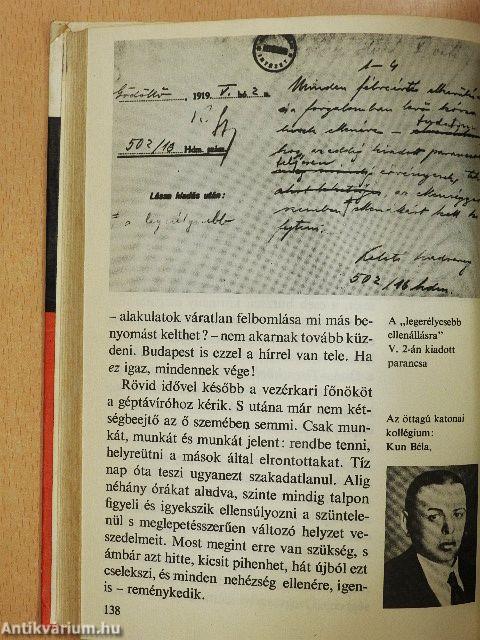 Gödöllő, 1919. V. hó 2 n.
502/13 Hdm. szám.
Lássa kiadás után:
Minden félreértés elkerülése
és a forgalomban levő
hogy az eddig kiadott parancsok
teljesen érvényesek,
az ellenséggel
szemben ellenállást kell ki
fejteni.
– alakulatok váratlan felbomlása mi más be-
nyomást kelthet? – nem akarnak tovább küz-
deni. Budapest is ezzel a hírrel van tele. Ha
ez igaz, mindennek vége!
Rövid idővel később a vezérkari főnököt
a géptávíróhoz kérik. S utána már nem két-
ségbeejtő az ő szemében semmi. Csak mun-
kát, munkát és munkát jelent: rendbe tenni,
helyreütni a mások által elrontottakat. Tíz
nap óta teszi ugyanezt szakadatlanul. Alig
néhány órákat aludva, szinte mindig talpon
figyeli és igyekszik ellensúlyozni a szüntele-
nül s meglepetésszerűen változó helyzet ve-
szedelmeit. Most megint erre van szükség, s
ámbár azt hitte, kicsit pihenhet, hát újból ezt
cselekszi, és minden nehézség ellenére, igen-
is – reménykedik.
138
A „legerélyesebb
ellenállásra”
V. 2-án kiadott
parancsa
Az öttagú katonai
kollégium:
Kun Béla,
Antikvárium.hu